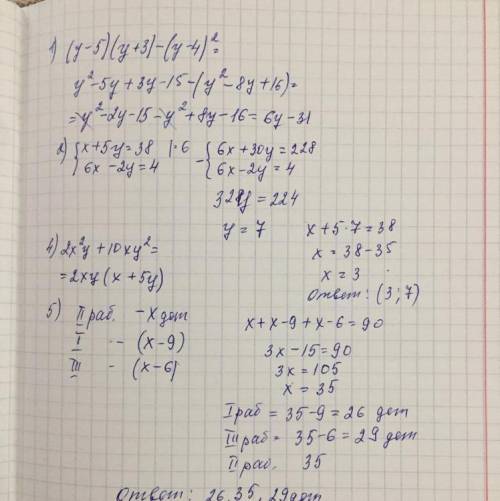 1) (y-5)(y+3)-(y-4)²=
y²-5y+3y-15-(y²-8y+16)=
=y²-2y-15-y²+8y-16=6y-31
2) {x+5y=38 |·6 -{6x+30y=228
{6x-2y=4 {6x-2y=4
32y=224
y=7 x+5·7=38
x=38-35
x=3
Ответ: (3;7)
4) 2x²y+10xy²=
=2xy(x+5y)
5) II раб. -x дет
I - (x-9)
III - (x-6)
x+x-9+x-6=90
3x-15=90
3x=105
x=35
I раб = 35-9=26 дет
III раб = 35-6=29 дет
II раб. 35
Ответ: 26, 35, 29 дет